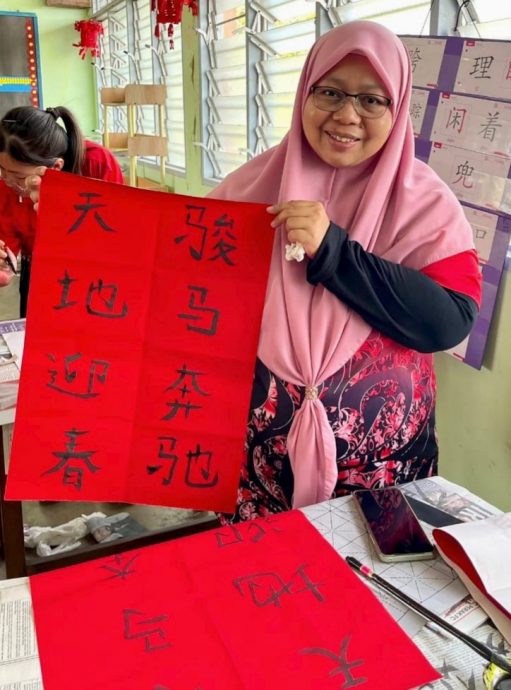 骏马奔驰
天地迎春
理
闲着
兜
口
地
马
天